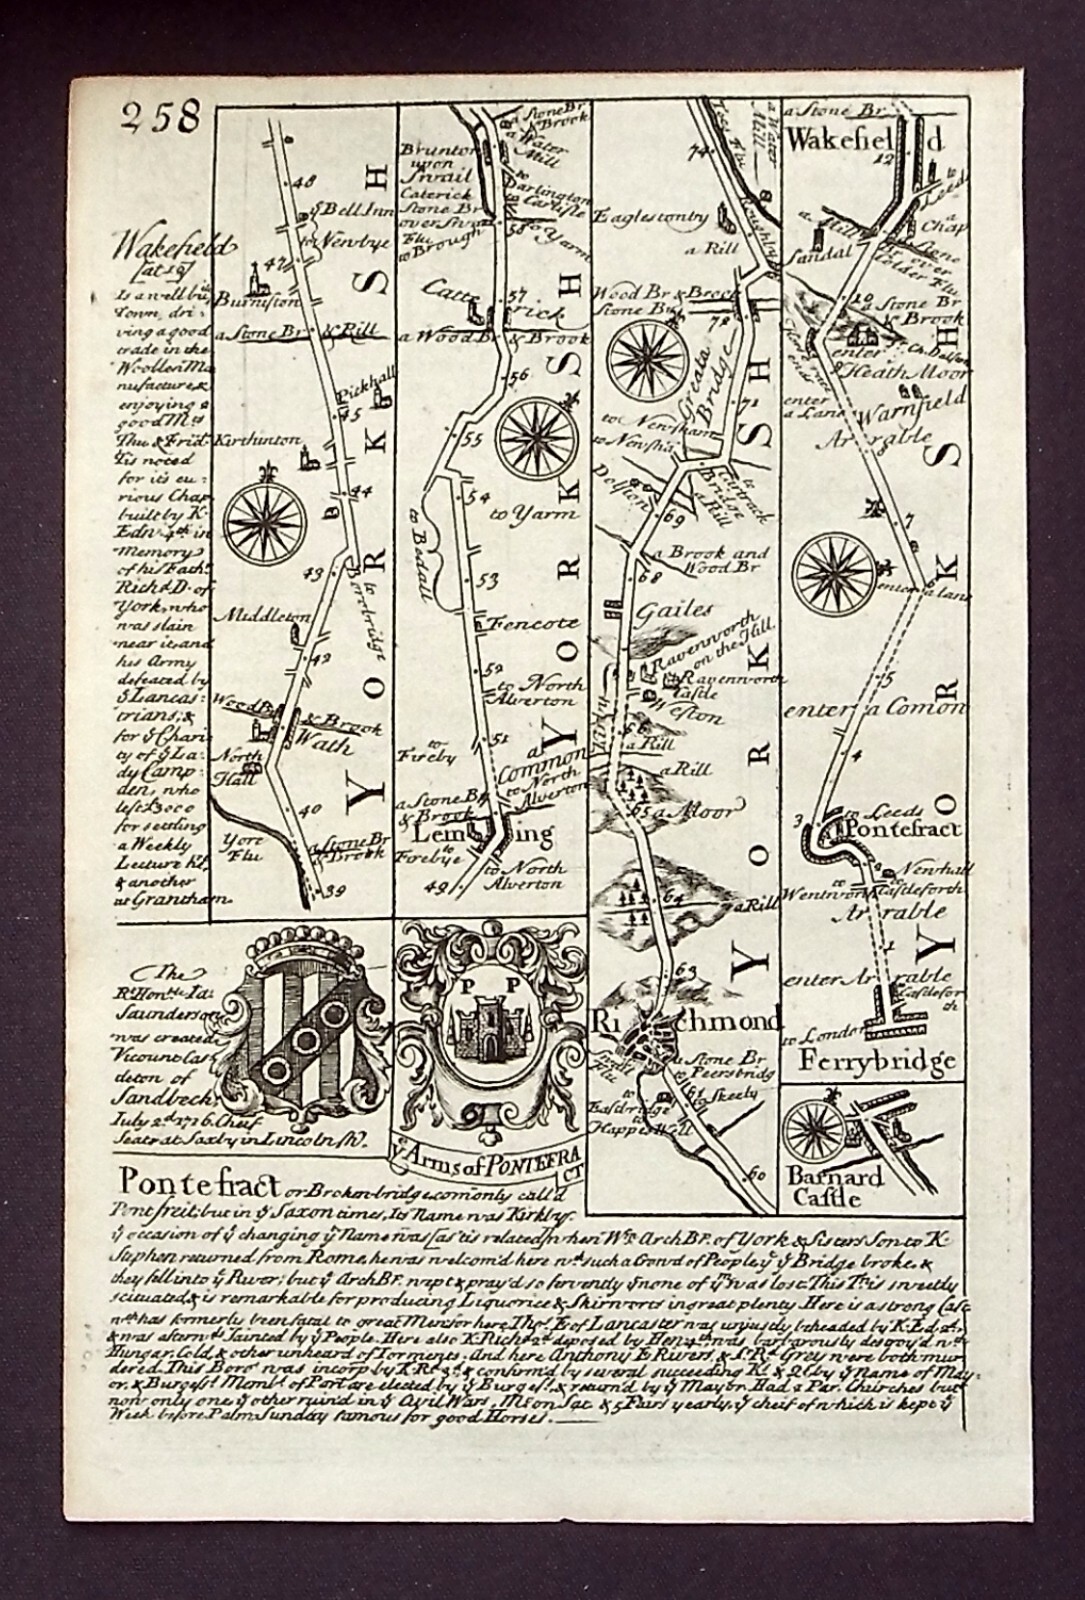 258
Wakefield
[at 19]
Is a well buit
Town, dri-
ving a good
trade in the
Woollen Ma
nufacture &
enjoying a
good Mt.
Thu & Frid.
Tis noted
for its cu:
rious Chap
built by K
Edw 4th in
memory
of his Fathr
Richd D. of
York, who
was slain
near it and
his Army
defeated by
ye Lancas:
trians, &
for ye Chari
ty of ye La-
dy Camp-
den, who
left £3000
for settling
a Weekly
Lecture
& another
at Grantham.
48
ye Bell Inn
to Newbye
47
Burniston
a Stone Br & Rill
Pickhall
45
Kirthinton
44
43
to Borobridge
Middleton
42
Wood Br & Brook
Wath
North Hall
40
Yore Flu
a Stone Br & Brook
39
YORKSH
a Stone Br & Brook
a Water Mill
Brunton upon Swail
Caterick Stone Br over Swa Flu
to Brough
to Darlington
to Carlisle
58
to Yarm
57
Catterick
a Wood Br & Brook
56
55
54
to Yarm
to Bedall
53
Fencote
52
to North Alverton
51
to Fireby
a Common
to North Alverton
a Stone Br & Brook
Leming
to Firebye
to North Alverton
49
YORKSH
74
Tees Flu
a Water Mill
Eaglestonby
a Rill
Wood Br & Brook
Stone Br
72
Greata Bridge
71
to Newsham
to Newsha
Dolston
to Cutrack Bridge
a Rill
69
a Brook and Wood Br
68
Gailes
Ravenworth on the Hill
Ravenworth Castle
Weston
Kirby
66
a Rill
a Rill
65
a Moor
64
a Rill
63
Richmond
Swale Flu
a Stone Br
to Peersbridg
61
to Skeely
to Easbridge
Happes Well
60
YORKSH
a Stone Br
Wakefield
12
to Leeds
a Chap
a Mill
Sandal
Stone Br over Calder Flu
10
a Stone Br & Brook
enter Heath Moor
enter a Lane
Warnfield
Arrable
7
enter a lane
5
enter a Comon
4
3
to Leeds
Pontefract
Newhall
2
to Wentworth
to Castleforth
Arrable
1
enter Arrable
to Castleforth
to London
Ferrybridge
YORKSH
Barnard
Castle
The
Rt Honble Ja:
Saunderson
was created
Vicount Cas
tleton of
Sandbeck
July 2d 1716. Cheif
Seate at Saxby in Lincolnsh.
P P
ye Arms of PONTEFRACT
Pontefract or Broken-bridge comonly call'd
Pontfreit; but in ye Saxon times, Its Name was Kirkby.
ye occasion of ye changing ye Name was [as 'tis related] when Wm ArchBp. of York & Sisters Son to K.
Stephen returned from Rome, he was welcom'd here wth such a Crowd of People yt ye Bridge broke, &
they fell into ye River; but ye ArchBp. wept & pray'd so fervently yt none of ym was lost. This Tn is sweetly
scituated, & is remarkable for producing Liquorice & Skirworts in great plenty. Here is a strong Cast
wch has formerly been fatal to great Men; for here Tho. E. of Lancaster was unjustly beheaded by K. Ed. 2d.
& was afterwds Sainted by ye People. Here also K. Richd 2d deposed by Hen. 4th was barbarously destroy'd wth
Hunger, Cold, & other unheard of Torments. And here Anthony E. Rivers, & Sr. Rd Grey were both mur
dered. This Boro' was incorp by K. Rd 3d & confirm'd by several succeeding Ks & Qs by ye Name of May-
or, & Burgess. Membrs of Part are elected by ye Burgess, & return'd by ye Mayor. Had 2 Par. Churches but
now only one ye other ruin'd in ye Civil Wars. Mt on Sat. & 5 Fairs yearly, ye cheif of which is kept ye
Week before Palm Sunday famous for good Horses.